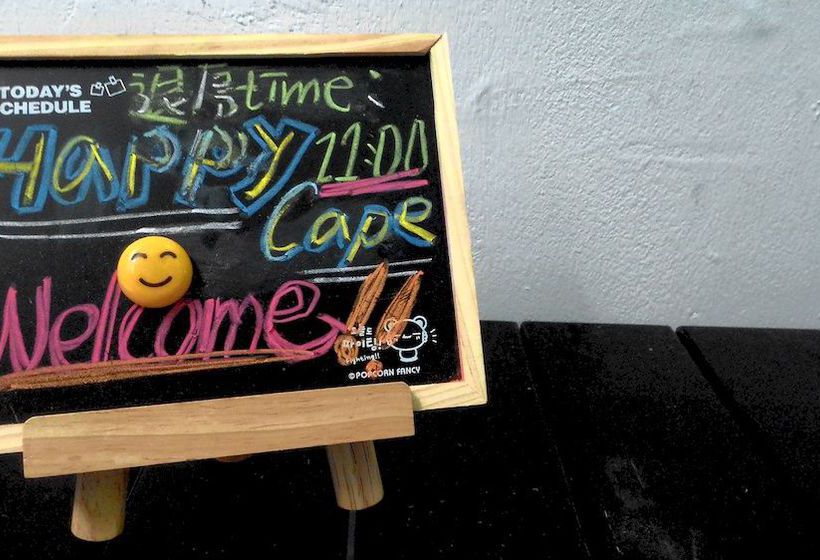 TODAY'S
CHEDULE
退房time:
Happy 11:00
Cape
Welcome!!
오늘도
파이팅!
fighting!!
©POPCORN FANCY